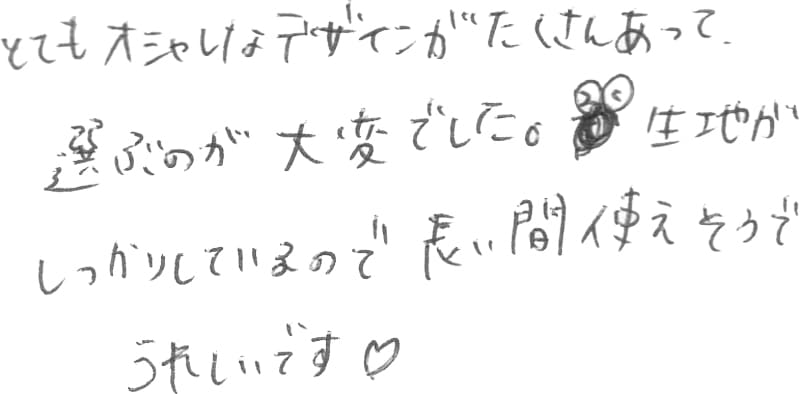 とてもオシャレなデザインがたくさんあって、
選ぶのが大変でした。生地が
しっかりしているので長い間使えそうで
うれしいです♡